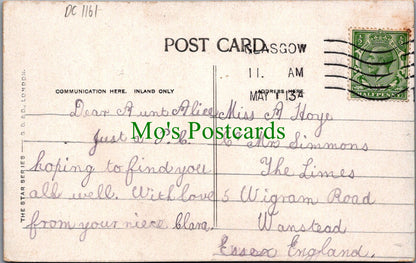 DC 1161
POST CARD.
GLASGOW
11. AM
MAY 1 13
HALFPENNY
COMMUNICATION HERE. INLAND ONLY
THE STAR SERIES
LONDON.
Dear Aunt Alice
Just a P.C.
hoping to find you
all well. With love
from your niece Clara.
Miss A Hoye
Mr Simmons
The Limes
5 Wigram Road
Wanstead
Essex England.
Mo's Postcards